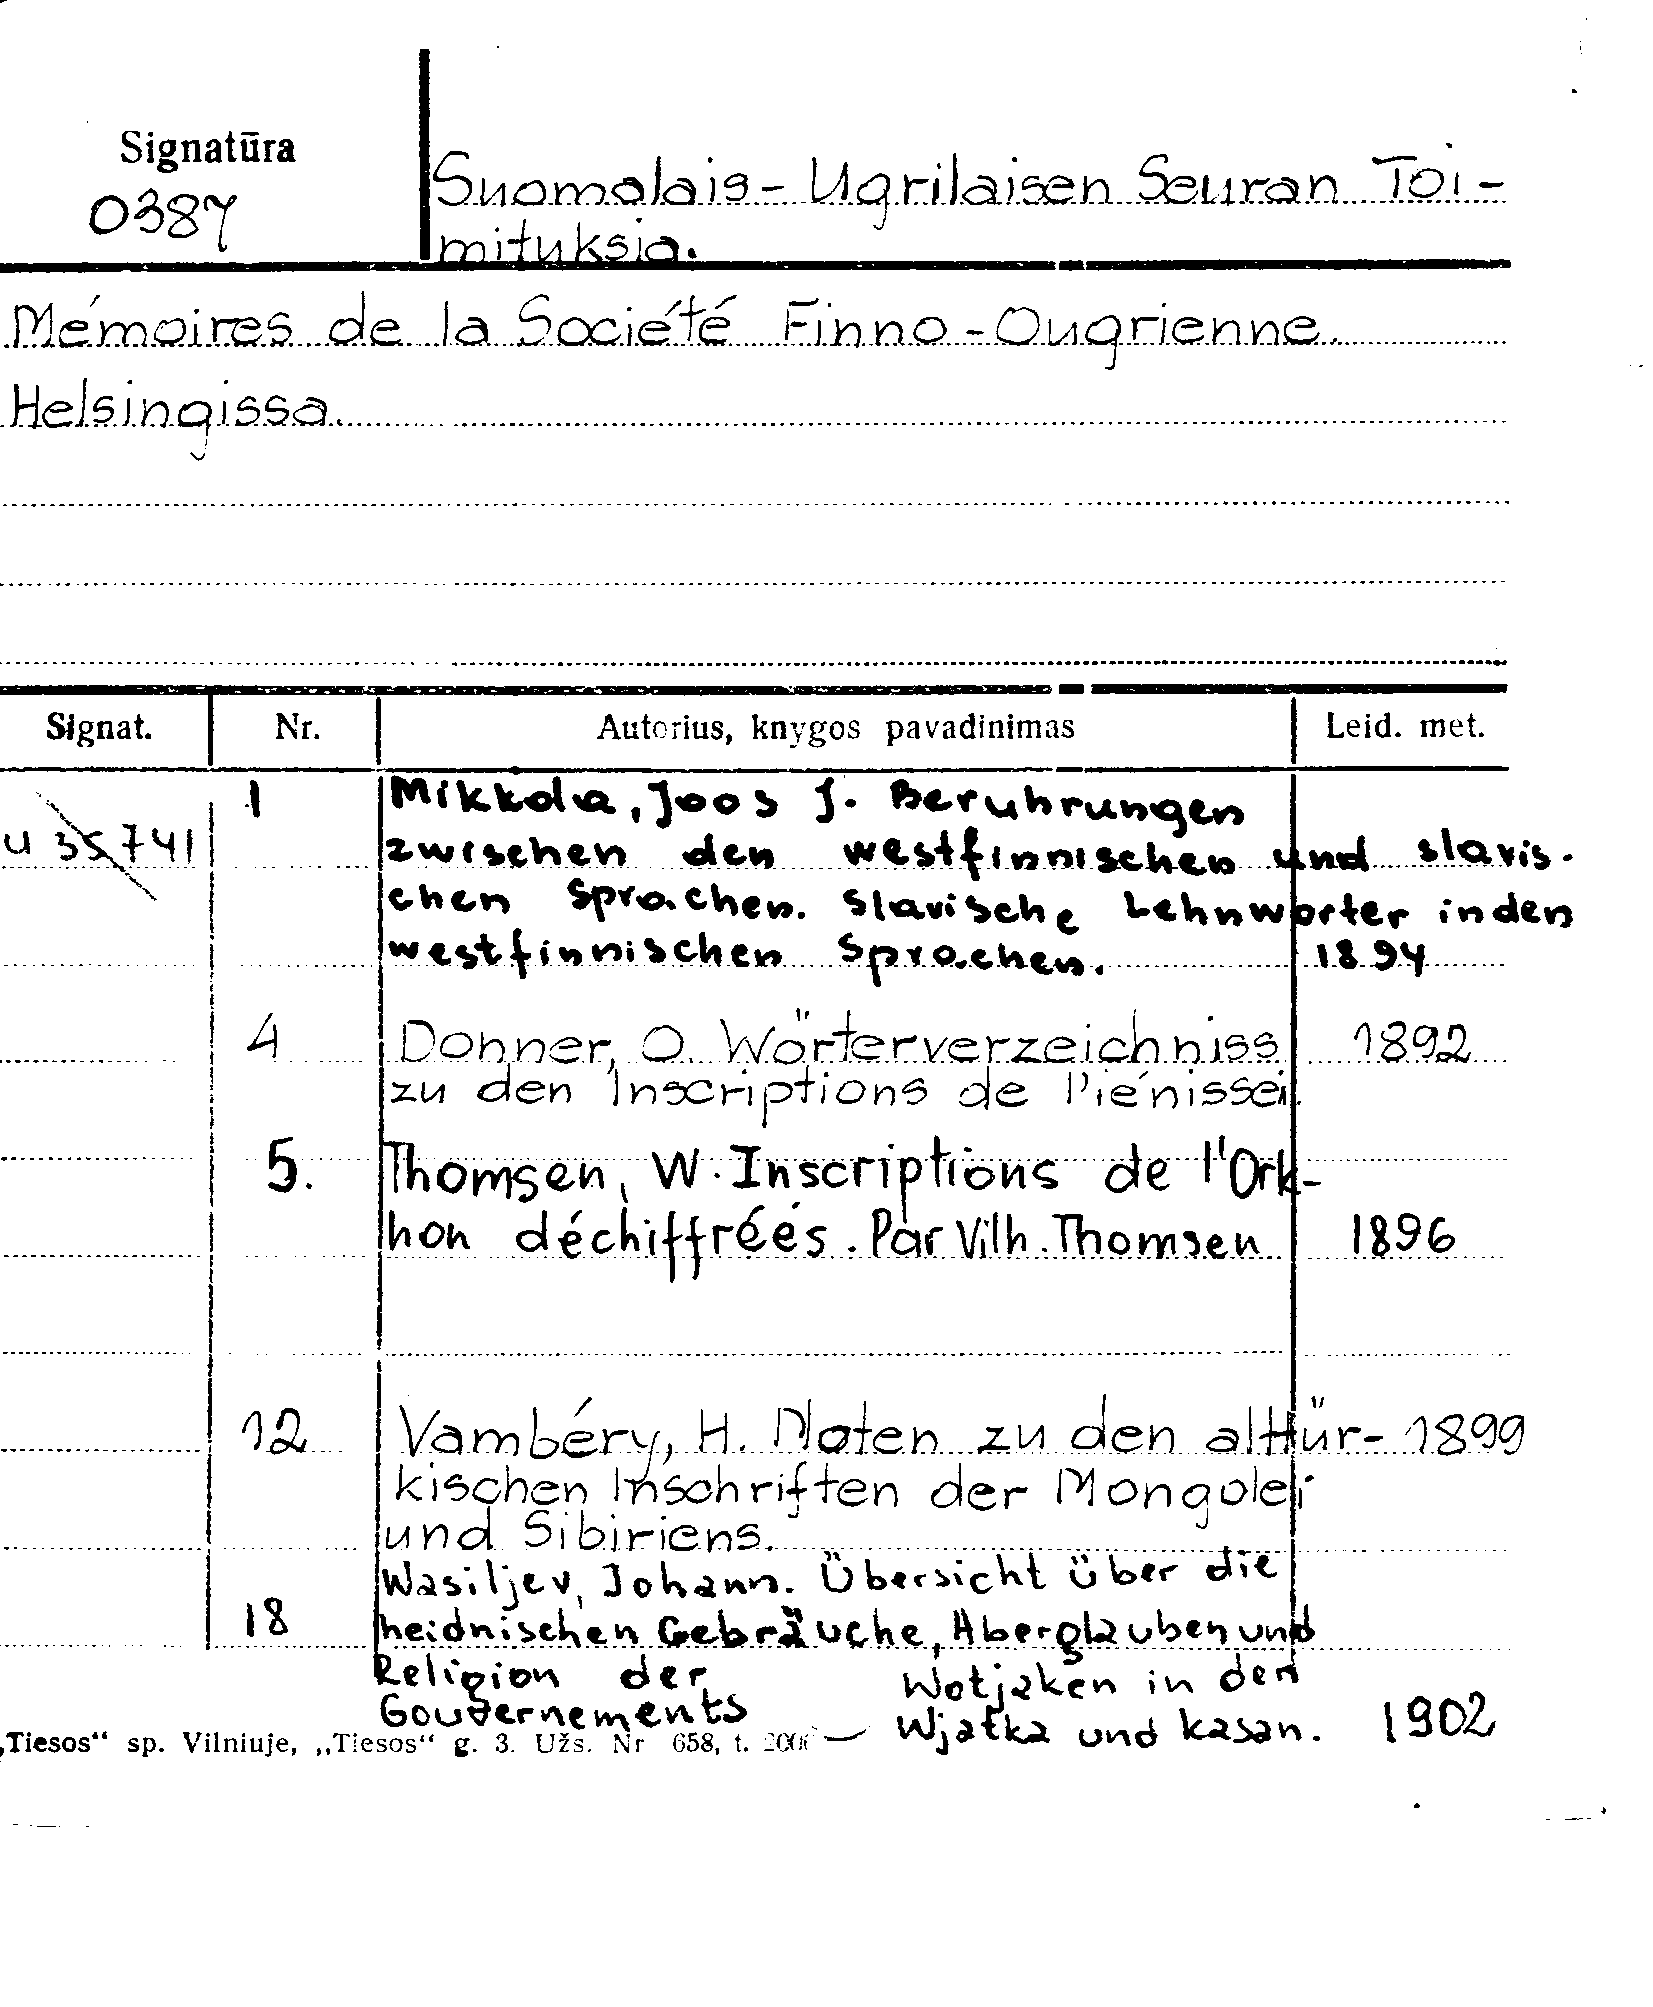 Signatūra
0387
Suomalais-Ugrilaisen Seuran Toi-
mituksia.
Mémoires de la Société Finno-Ougrienne.
Helsingissa.
Signat. Nr. Autorius, knygos pavadinimas Leid. met.
u 35741 1 Mikkola, Joos J. Beruhrungen
zwischen den westfinnischen und slavis-
chen Sprachen. Slavische Lehnworter in den
westfinnischen Sprachen. 1894
4 Donner, O. Wörterverzeichniss 1892
zu den Inscriptions de l'iénissei.
5. Thomsen, W. Inscriptions de l'Ork-
hon déchiffréés. Par Vilh. Thomsen 1896
12 Vambéry, H. Noten zu den alttür- 1899
kischen Inschriften der Mongolei
und Sibiriens.
Wasiljev, Johann. Übersicht über die
18 heidnischen Gebräuche, Aberglauben und
Religion der Wotjaken in den
Gouvernements Wjatka und Kasan. 1902
„Tiesos“ sp. Vilniuje, „Tiesos“ g. 3. Užs. Nr 658, t.